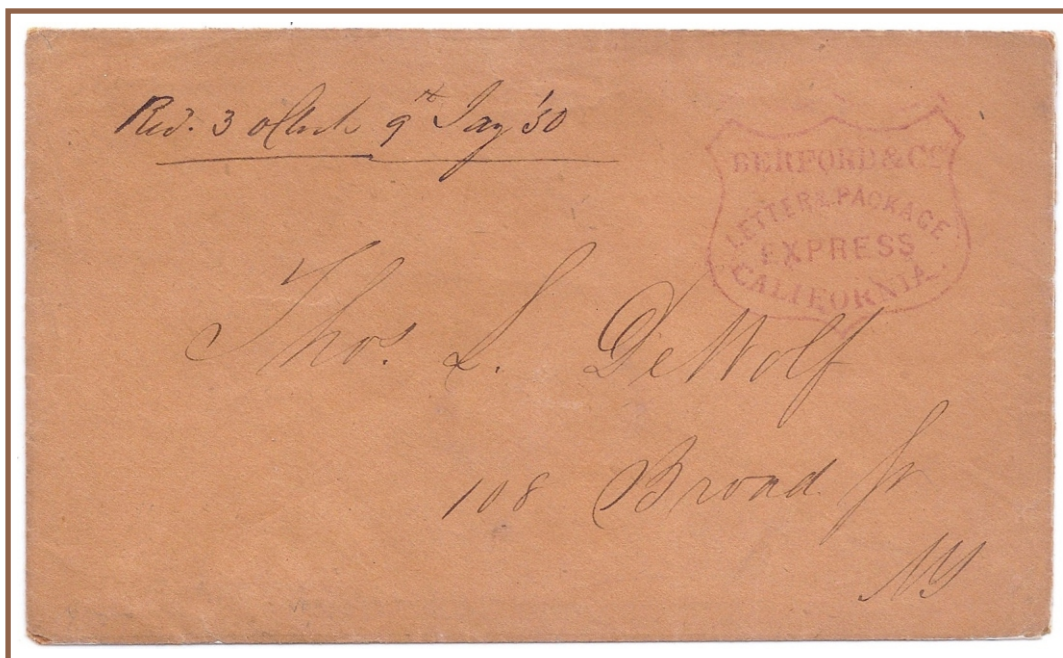 Rcd. 3 oClock 9th Jany '50
BERFORD & Co
LETTER & PACKAGE
EXPRESS
CALIFORNIA.
Thos. DeWolf
108 Broad St
NY